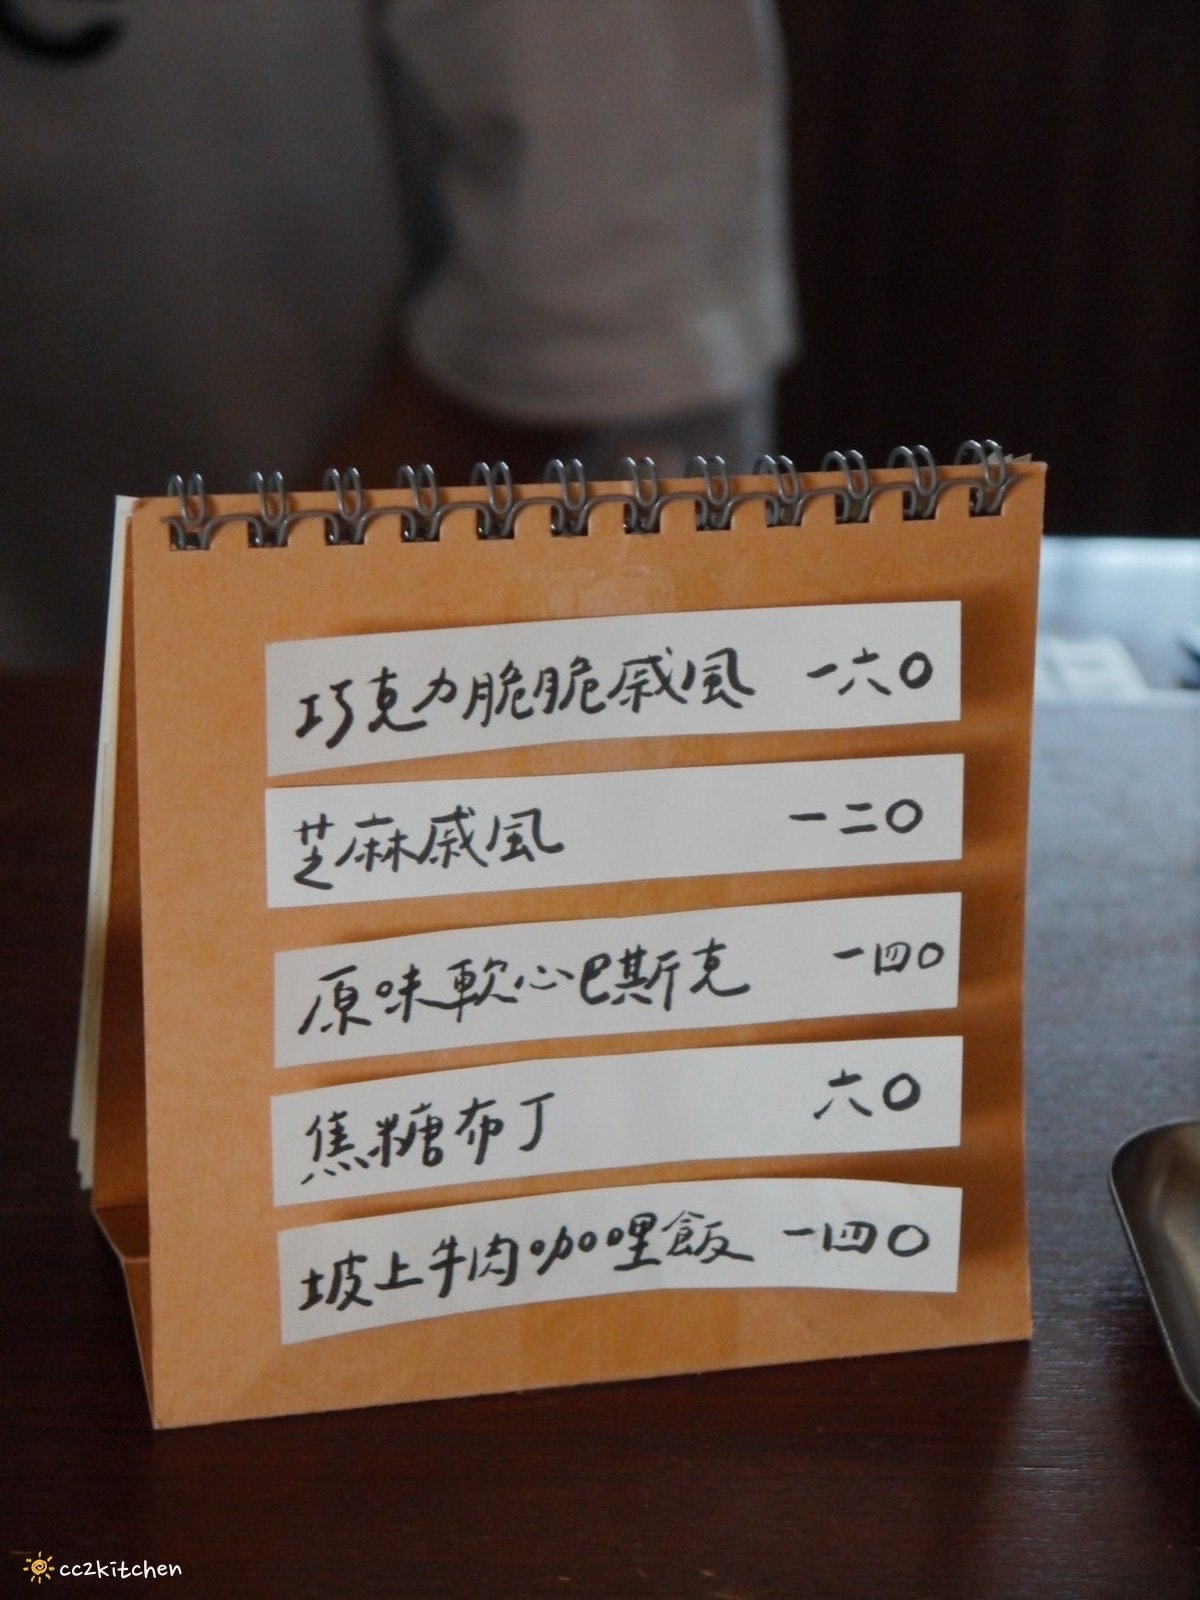 巧克力脆脆戚風 一六〇
芝麻戚風 一二〇
原味軟心巴斯克 一四〇
焦糖布丁 六〇
坡上牛肉咖哩飯 一四〇
cc2kitchen